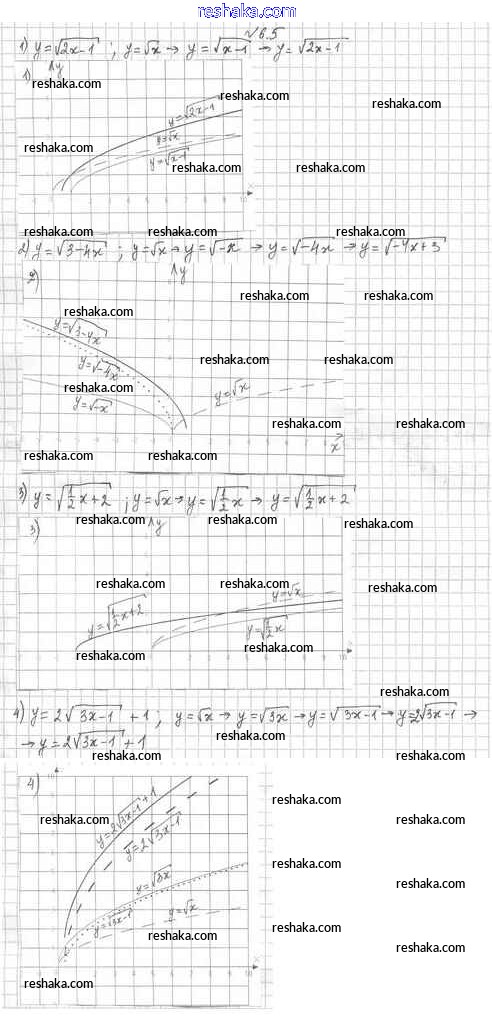 reshaka.com
√6.5
1) y=√(2x-1) ; y=√x → y=√(x-1) → y=√(2x-1)
1) y
reshaka.com
reshaka.com
y=√(2x-1)
reshaka.com
y=√x
y=√(x-1)
reshaka.com reshaka.com
10 x
reshaka.com reshaka.com reshaka.com
2) y=√(3-4x) ; y=√x → y=√(-x) → y=√(-4x) → y=√(-4x+3)
2) y
reshaka.com
reshaka.com
y=√(3-4x)
reshaka.com reshaka.com
y=√(-4x)
reshaka.com
y=√x
y=√(-x)
reshaka.com reshaka.com
x
reshaka.com
3) y=√(1/2x+2) ; y=√x → y=√(1/2x) → y=√(1/2x+2)
reshaka.com reshaka.com
3) y
reshaka.com reshaka.com reshaka.com
y=√x
y=√(1/2x+2)
y=√(1/2x)
reshaka.com
reshaka.com
10
reshaka.com
4) y=2√(3x-1)+1 ; y=√x → y=√(3x) → y=√(3x-1) → y=2√(3x-1) →
reshaka.com
→ y=2√(3x-1)+1
reshaka.com reshaka.com
4)
reshaka.com
y=2√(3x-1)+1
reshaka.com reshaka.com
y=2√(3x-1)
reshaka.com
y=√(3x)
reshaka.com
y=√x
y=√(3x-1)
reshaka.com
reshaka.com
reshaka.com
10 x
reshaka.com